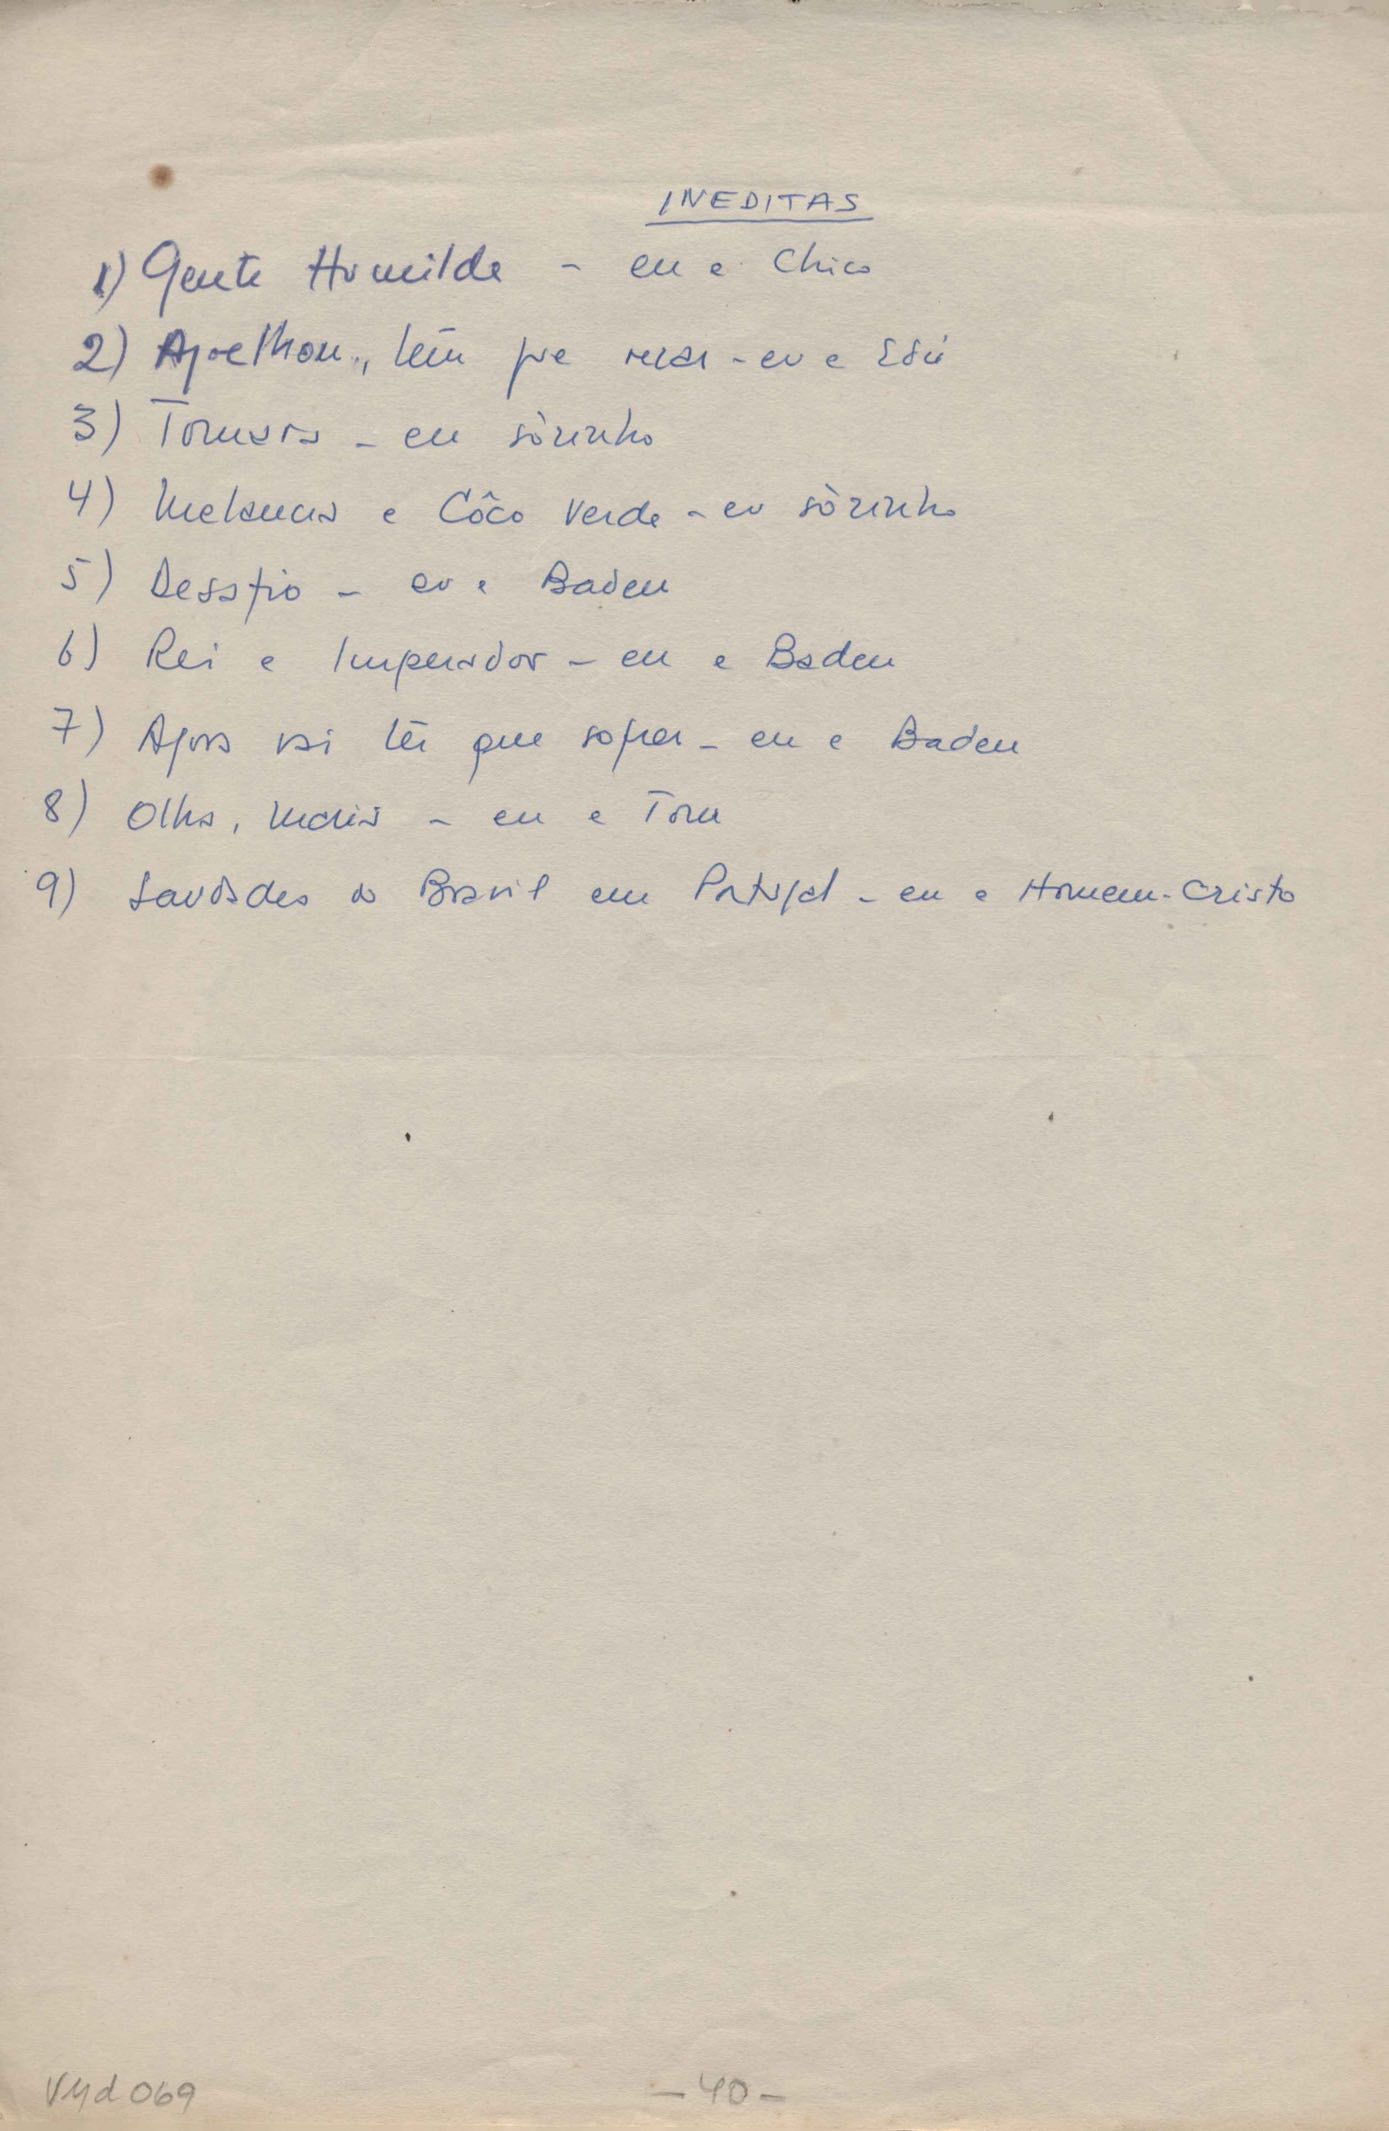 INEDITAS
1) Gente Humilde - eu e Chico
2) Ajoelhou, tem que rezar - eu e Edú
3) Tomara - eu sòzinho
4) Melancia e Côco Verde - eu sòzinho
5) Desafio - eu e Baden
6) Rei e Imperador - eu e Baden
7) Agora vai ter que sofrer - eu e Baden
8) Olha, Maria - eu e Tom
9) Saudades do Brasil em Portugal - eu e Homem-Cristo
VMd 069
- 40 -